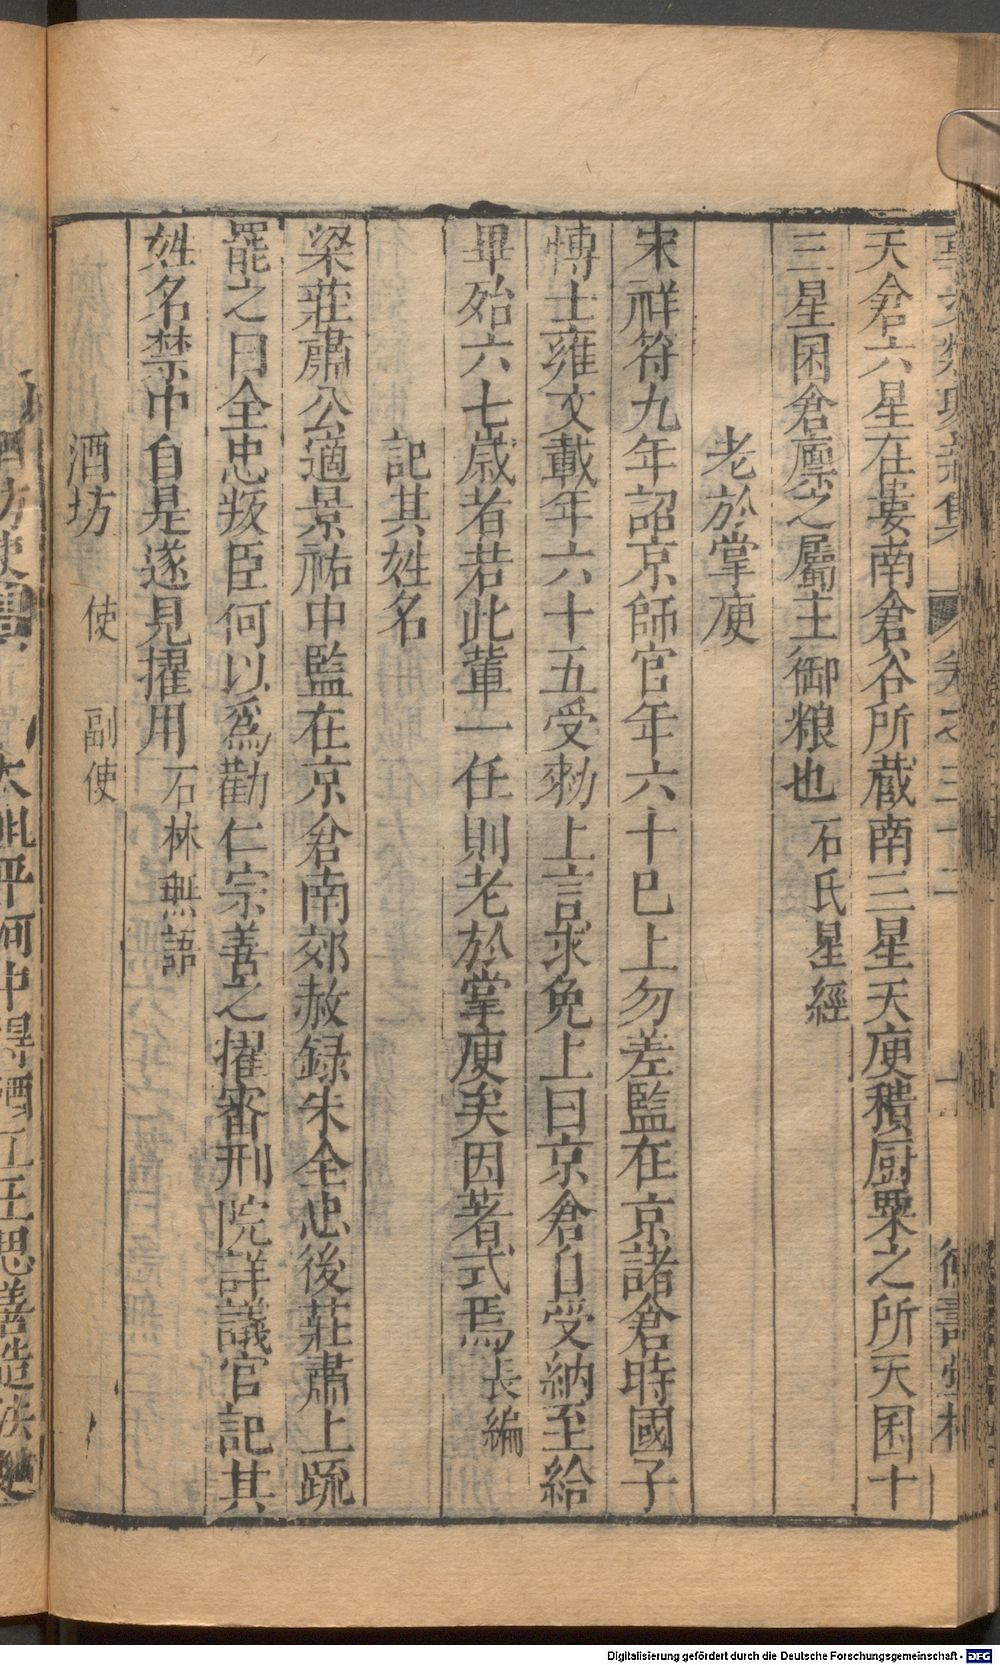 天倉六星在婁南倉谷所蔵南三星天庾積厨粟之所天囷十
三星困倉廪之屬主御粮也石氏星經
老於掌庾
宋祥符九年詔京師官年六十巳上勿差監在京諸倉時國子
博士雍文載年六十五受勑上言求免上曰京倉自受納至給
畢殆六七歳者若此軰一任則老於掌庾矣因著式焉長編
記其姓名
梁莊肅公適景祐中監在京倉南郊赦録朱全忠後莊肅上疏
罷之曰全忠叛臣何以爲勸仁宗善之擢審刑院詳議官記其
姓名禁中自是遂見擢用石林燕語
酒坊使 副使
Digitalisierung gefördert durch die Deutsche Forschungsgemeinschaft - DFG